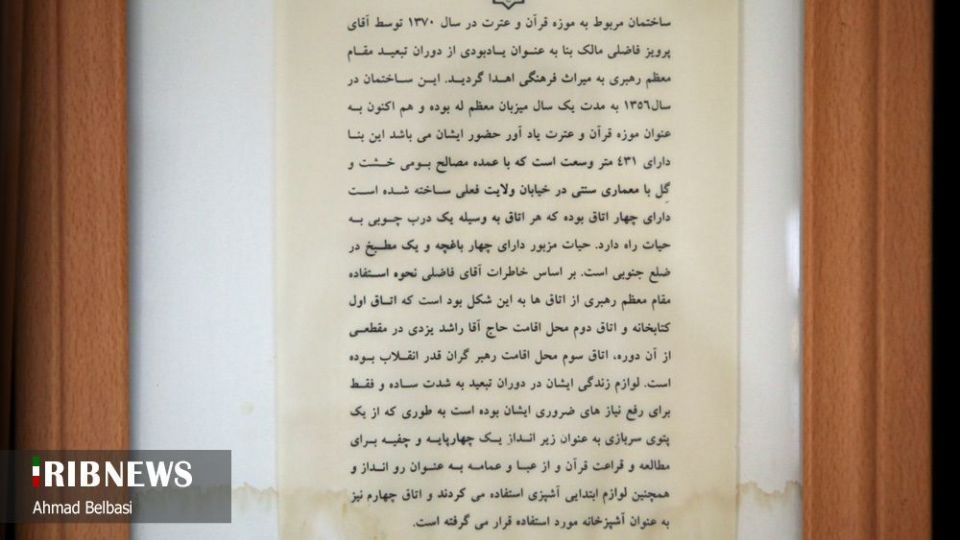 ساختمان مربوط به موزه قرآن و عترت در سال ۱۳۷۰ توسط آقای
پرویز فاضلی مالک بنا به عنوان یادبودی از دوران تبعید مقام
معظم رهبری به میراث فرهنگی اهدا گردید. این ساختمان در
سال۱۳۵٦ به مدت یک سال میزبان معظم له بوده و هم اکنون به
عنوان موزه قرآن و عترت یاد آور حضور ایشان می باشد این بنا
دارای ٤۳۱ متر وسعت است که با عمده مصالح بومی خشت و
گِل با معماری سنتی در خیابان ولایت فعلی ساخته شده است
دارای چهار اتاق بوده که هر اتاق به وسیله یک درب چوبی به
حیات راه دارد. حیات مزبور دارای چهار باغچه و یک مطبخ در
ضلع جنوبی است. بر اساس خاطرات آقای فاضلی نحوه استفاده
مقام معظم رهبری از اتاق ها به این شکل بود است که اتاق اول
کتابخانه و اتاق دوم محل اقامت حاج آقا راشد یزدی در مقطعی
از آن دوره، اتاق سوم محل اقامت رهبر گران قدر انقلاب بوده
است. لوازم زندگی ایشان در دوران تبعید به شدت ساده و فقط
برای رفع نیاز های ضروری ایشان بوده است به طوری که از یک
پتوی سربازی به عنوان زیر انداز یک چهارپایه و چفیه برای
مطالعه و قراعت قرآن و از عبا و عمامه به عنوان رو انداز و
همچنین لوازم ابتدایی آشپزی استفاده می کردند و اتاق چهارم نیز
به عنوان آشپزخانه مورد استفاده قرار می گرفته است.
IRIBNEWS
Ahmad Belbasi